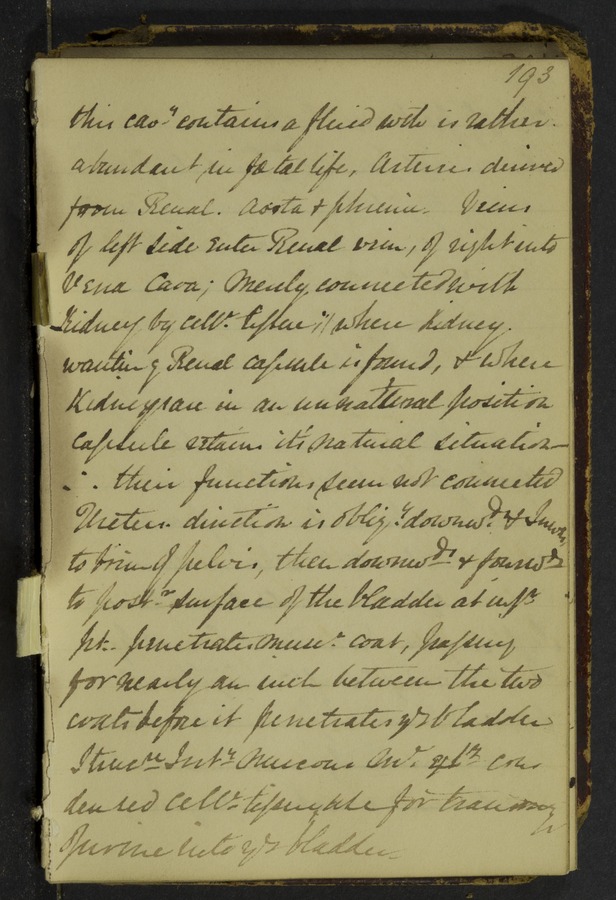 193
this cavy contains a fluid wch is rather
abundant in foetal life, Arteries derived
from Renal. Aorta & phrenic. Veins
of left side enter Renal vein, of right into
Vena Cava; Merely connected with
Kidney by cellr tissue; where Kidney
wanting Renal capsule is found, & where
Kidneys are in an unnatural position
capsule retains it's natural situation—
∴ their functions seem not connected
Ureters direction is obliqy downwds & Inwds
to brim of pelvis, then downwds & forwds
to postr surface of the bladder at infr
pt. penetrates muscr coat, passing
for nearly an inch between the two
coats before it penetrates ye bladder
Strucre Intr Mucous extr con
densed cellr tissue for
of urine into ye bladder